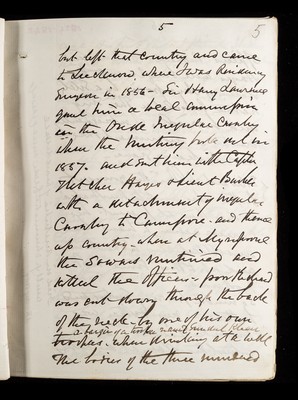 5
5
but left that country and came
to Lucknow, where I was Residency
Surgeon in 1856 - Sir Henry Lawrence
gave him a local commission
in the Oude Irregular Cavalry
when the Mutiny broke out in
1857. and sent him with Captn
Fletcher Hayes & Lieut Barber
with a detachment of irregular
Cavalry to Cawnpore - and thence
up country - where at Mynpoorie
the Sowars mutinied and
killed the officers - poor
was cut down through the back
of the neck - by one of his own
a bargir of a trooper
troopers - when drinking at a well
The bodies of the three murdered